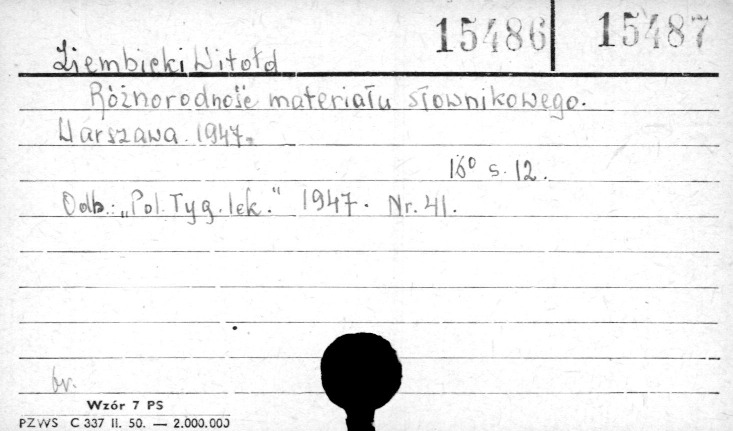 15486 15487
Ziembicki Witołd
Różnorodność materiału słownikowego.
Warszawa. 1947.
16° s. 12.
Odb.: „Pol. Tyg. lek." 1947. Nr. 41.
br.
Wzór 7 PS
PZWS C 337 II. 50. — 2.000.000